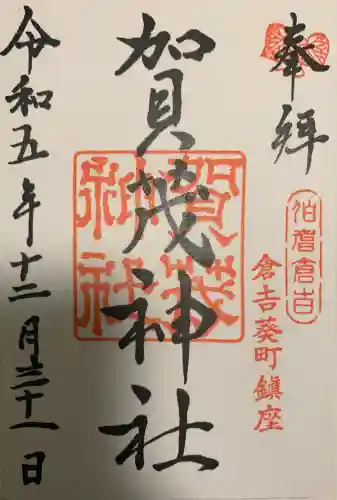 奉拝
伯耆倉吉
倉吉葵町鎮座
賀茂神社
賀茂
神社
令和五年十二月三十一日